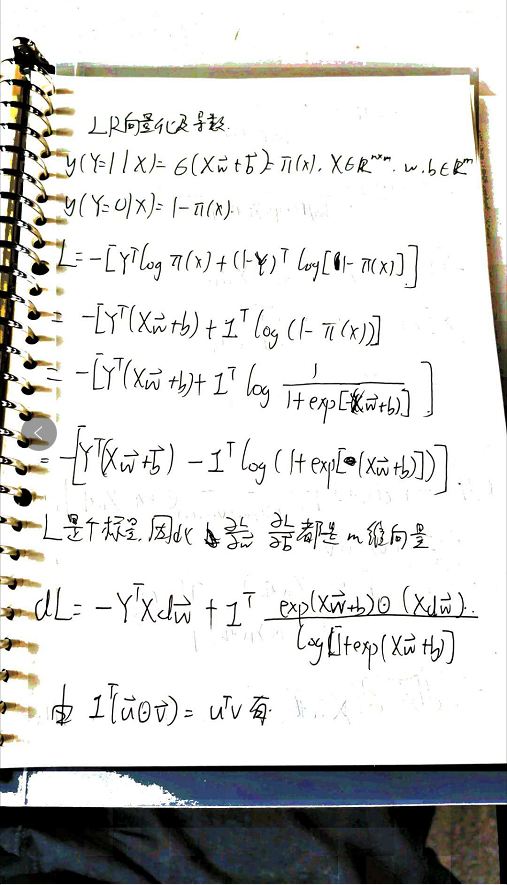 LR向量化及导数.
y(Y=1|X)= σ(Xw⃗+b⃗)=π(x). X∈R^{n×m}. w.b∈R^m
y(Y=0|X)= 1-π(x).
L=-[Y^T log π(x)+(1-Y)^T log[1-π(x)]]
= -[Y^T(Xw⃗+b)+1^T log(1-π(x))]
= -[Y^T(Xw⃗+b)+1^T log 1/(1+exp[(Xw⃗+b)])]
= -[Y^T(Xw⃗+b⃗)-1^T log(1+exp[(Xw⃗+b)])].
L是个标量,因 ∂L/∂w⃗ ∂L/∂b⃗ 都是m维向量
dL= -Y^T X dw⃗ + 1^T exp(Xw⃗+b)⊙(Xdw⃗)/log[1+exp(Xw⃗+b)]
由 1^T(u⃗⊙v⃗)= u^T v 有